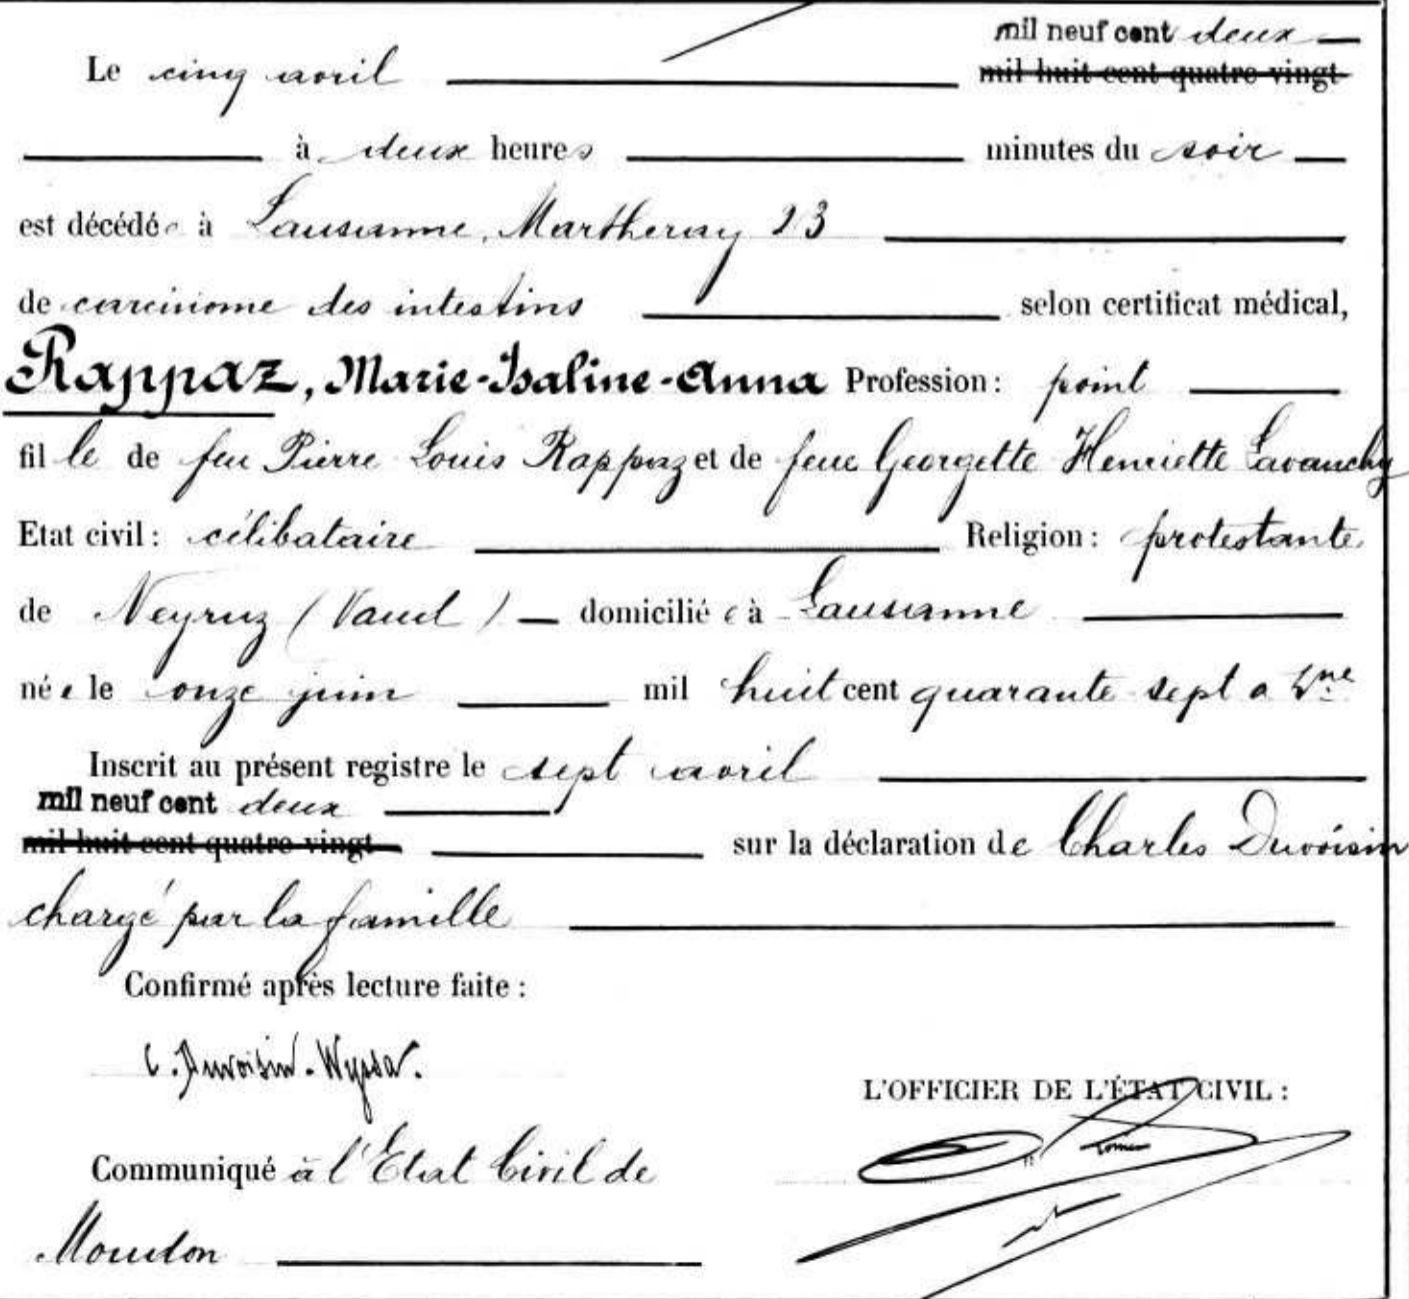 mil neuf cent deux
Le cinq avril mil huit cent quatre vingt
à deux heures minutes du soir
est décédée à Lausanne, Martheray 23
de carcinome des intestins selon certificat médical,
Rappaz, Marie-Isaline-Anna Profession: point
fil le de feu Pierre Louis Rappaz et de feue Georgette Henriette Lavanchy
Etat civil: célibataire Religion: protestante
de Neyruz (Vaud) domiciliée à Lausanne
née le onze juin mil huit cent quarante sept a Lne
Inscrit au présent registre le sept avril
mil neuf cent deux
mil huit cent quatre vingt sur la déclaration de Charles Duvoisin
chargé par la famille
Confirmé après lecture faite:
C. Duvoisin-
L'OFFICIER DE L'ÉTAT CIVIL:
Communiqué à l'Etat Civil de
Moudon